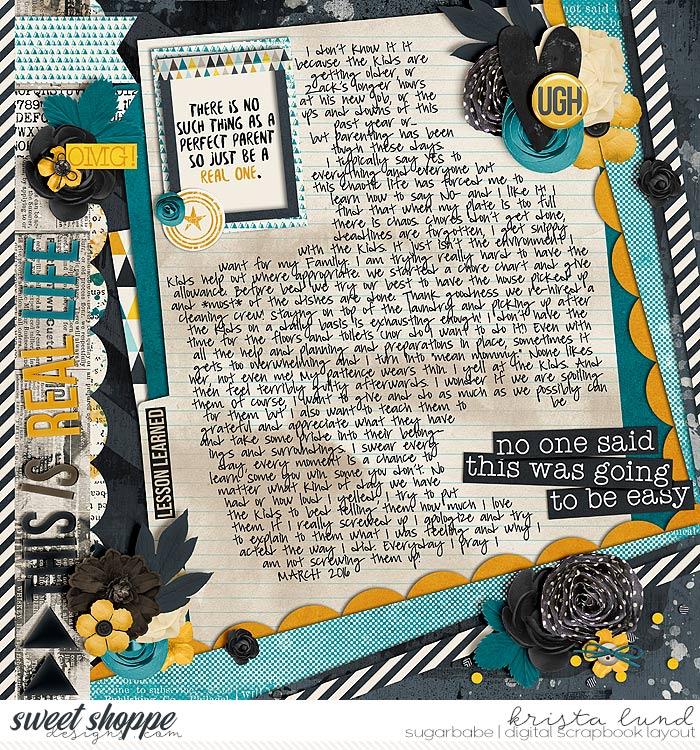 OMG!
THIS IS REAL LIFE
THERE IS NO
SUCH THING AS A
PERFECT PARENT
SO JUST BE A
REAL ONE.
UGH
I don't know if it
because the kids are
getting older, or
Zack's longer hours
at his new job, or the
ups and downs of this
past year or...
but parenting has been
tough these days.
I typically say yes to
everything and everyone but
this chaotic life has forced me to
learn how to say No- and I like it! I
find that when my plate is too full
there is chaos. Chores don't get done,
deadlines are forgotten, I get snippy
with the kids. It just isn't the environment I
want for my family. I am trying really hard to have the
kids help out where appropriate. We started a chore chart and give
allowance. Before bed we try our best to have the house picked up
and *most* of the dishes are done. Thank goodness we re-hired a
cleaning crew! Staying on top of the laundry and picking up after
the kids on a daily basis is exhausting enough. I don't have the
time for the floors and toilets (nor do I want to do it!!) Even with
all the help and planning and preparations in place, sometimes it
gets to overwhelming and I turn into "mean mommy". Noone likes
her, not even me. My patience wears thin, I yell at the kids. And
then feel terribly guilty afterwards. I wonder if we are spoiling
them. Of course, I want to give and do as much as we possibly can
for them but I also want to teach them to be
grateful and appreciate what they have
and take some pride into their belong-
ings and surroundings. I swear every
day, every moment is a chance to
learn. Some you win, some you don't. No
matter what kind of day we have
had or how loud I yelled, I try to put
the kids to bed telling them how much I love
them. If I really screwed up I apologize and try
to explain to them what I was feeling and why I
acted the way I did. Everyday I pray I
am not screwing them up!
MARCH 2016
LESSON LEARNED
no one said
this was going
to be easy
sweet shoppe
designs.com
krista lund
sugarbabe | digital scrapbook layout